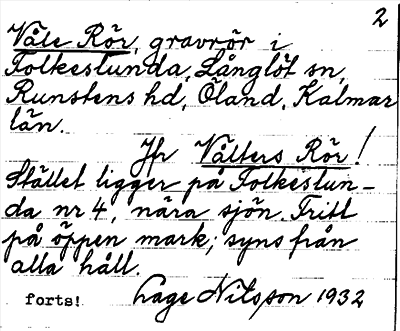 2
Våle Rör, gravrör i
Folkeslunda, Långlöt sn,
Runstens hd, Öland, Kalmar
län.
Jfr Vålters Rör!
Stället ligger på Folkeslun-
da nr 4, nära sjön. Fritt
på öppen mark; syns från
alla håll.
forts! Lage Nilsson 1932